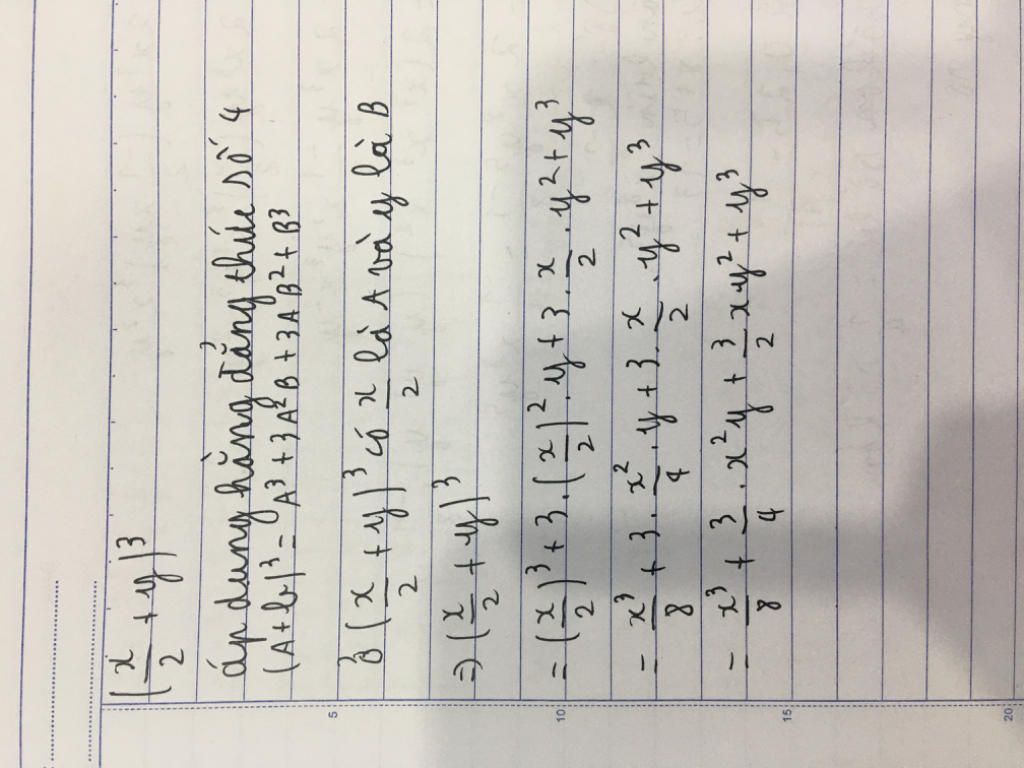 (x/2 + y)³
áp dụng hằng đẳng thức số 4
(A+b)³ = A³ + 3A²B + 3AB² + B³
ở (x/2 + y)³ có x/2 là A và y là B
=) (x/2 + y)³
= (x/2)³ + 3.(x/2)².y + 3.x/2.y² + y³
= x³/8 + 3.x²/4.y + 3.x/2.y² + y³
= x³/8 + 3/4.x²y + 3/2xy² + y³
5
10
15
20